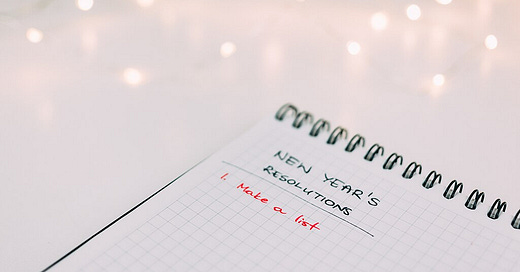 NEW YEAR'S
RESOLUTIONS
1. Make a list